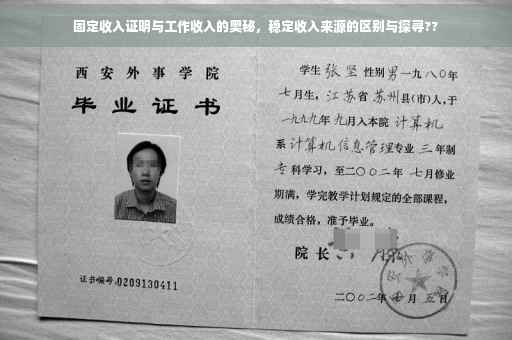 固定收入证明与工作收入的奥秘，稳定收入来源的区别与探寻??
西安外事学院
毕业证书
证书编号:0209130411
学生张坚性别男一九八〇年
七月生，江苏省苏州县(市)人,于
一九九九年九月入本院计算机
系计算机信息管理专业三年制
专科学习，至二〇〇二年七月修业
期满，学完教学计划规定的全部课程，
成绩合格，准予毕业。
院长
二〇〇二年 月五日